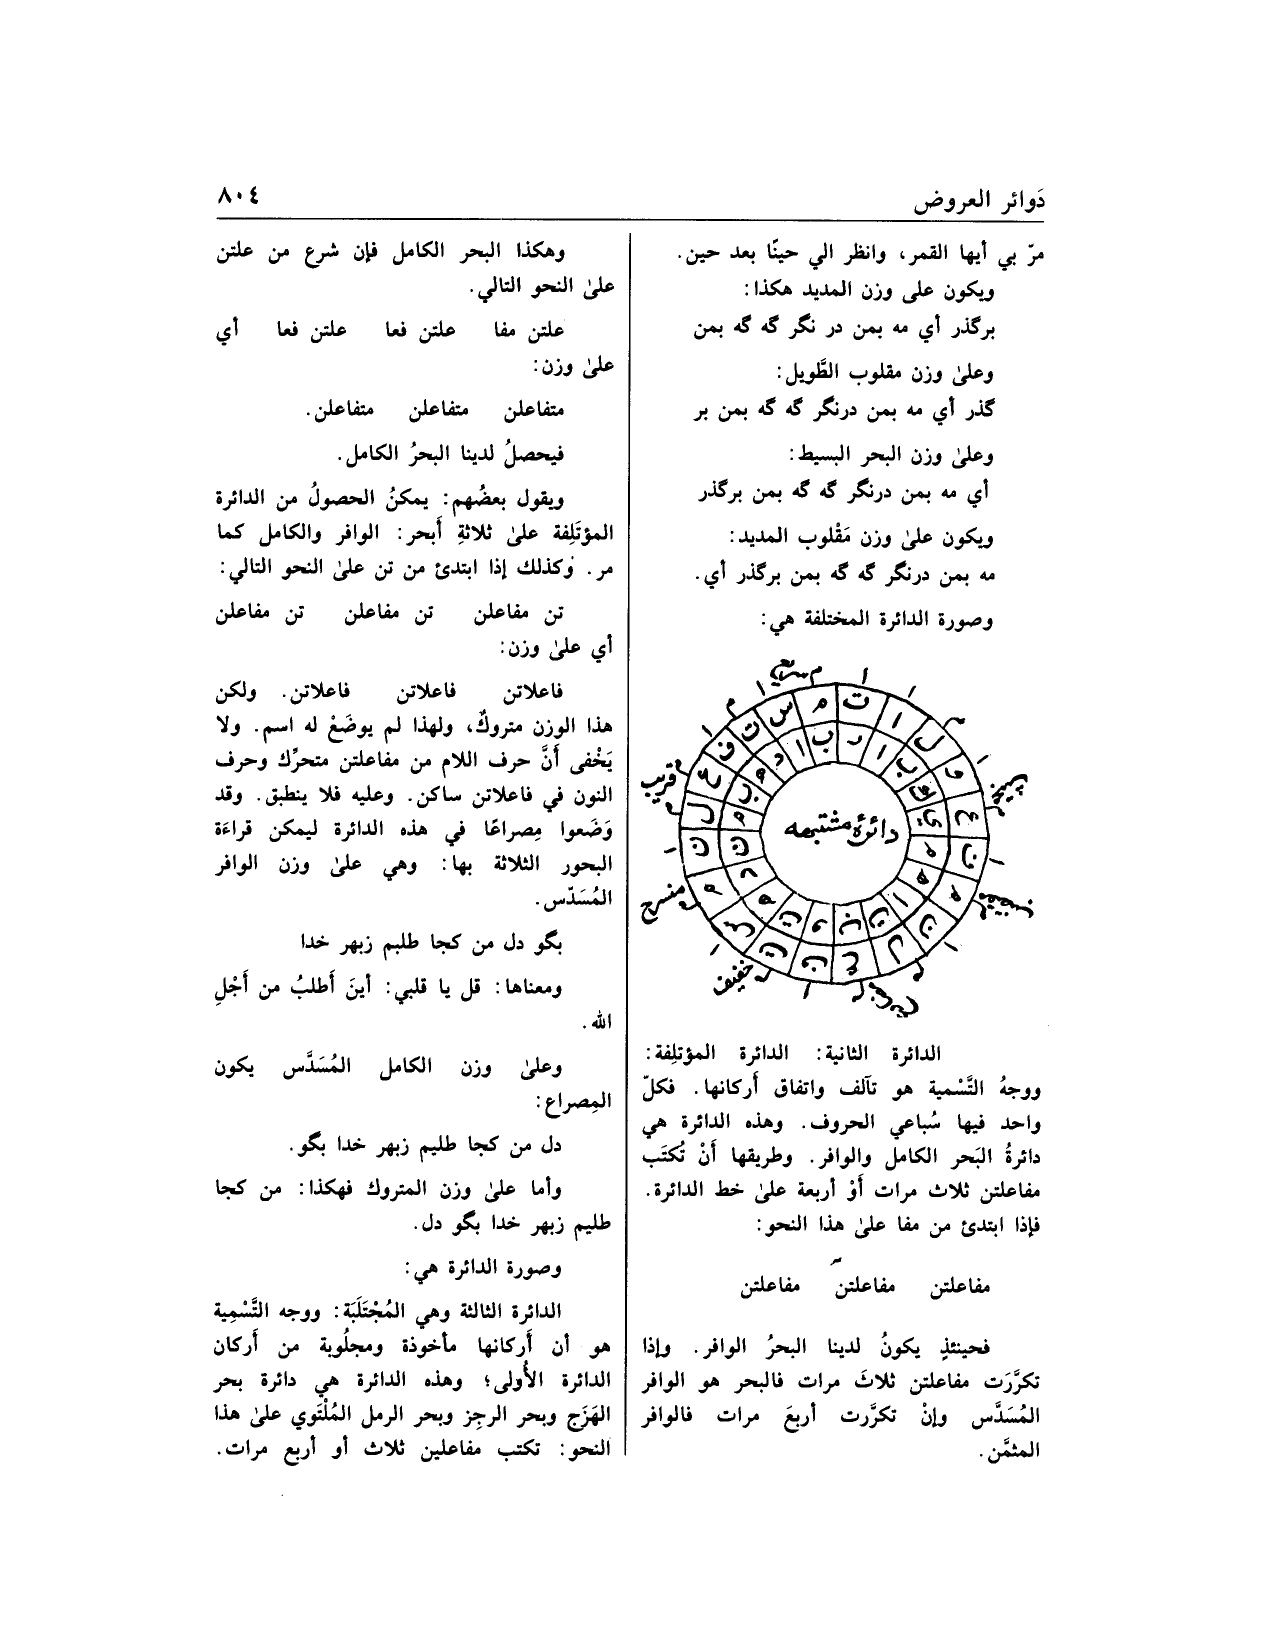 دَوائر العروض
٨٠٤
مرّ بي أيها القمر، وانظر الي حينًا بعد حين.
ويكون على وزن المديد هكذا:
برگذر أي مه بمن در نگر گه گه بمن
وعلىٰ وزن مقلوب الطَّويل:
گذر أي مه بمن درنگر گه گه بمن بر
وعلىٰ وزن البحر البسيط:
أي مه بمن درنگر گه گه بمن برگذر
ويكون علىٰ وزن مَقْلوب المديد:
مه بمن درنگر گه گه بمن برگذر أي.
وصورة الدائرة المختلفة هي:
سريع
قريب
منسرح
خفيف
دائرهٔ مشتبهه
الدائرة الثانية: الدائرة المؤتلِفة:
ووجهُ التَّسْمية هو تآلف واتفاق أركانها. فكلّ
واحد فيها سُباعي الحروف. وهذه الدائرة هي
دائرةُ البَحر الكامل والوافر. وطريقها أنْ تُكتَب
مفاعلتن ثلاث مرات أوْ أربعة علىٰ خط الدائرة.
فإذا ابتدئ من مفا علىٰ هذا النحو:
مفاعلتن مفاعلتن مفاعلتن
فحينئذٍ يكونُ لدينا البحرُ الوافر. وإذا
تكرَّرَت مفاعلتن ثلاثَ مرات فالبحر هو الوافر
المُسَدَّس وإنْ تكرَّرت أربعَ مرات فالوافر
المثمَّن.
وهكذا البحر الكامل فإن شرع من علتن
علىٰ النحو التالي.
علتن مفا علتن فعا علتن فعا أي
علىٰ وزن:
متفاعلن متفاعلن متفاعلن.
فيحصلُ لدينا البحرُ الكامل.
ويقول بعضُهم: يمكنُ الحصولُ من الدائرة
المؤتَلِفة علىٰ ثلاثةِ أَبحر: الوافر والكامل كما
مر. وكذلك إذا ابتدئ من تن علىٰ النحو التالي:
تن مفاعلن تن مفاعلن تن مفاعلن
أي علىٰ وزن:
فاعلاتن فاعلاتن فاعلاتن. ولكن
هذا الوزن متروكٌ، ولهذا لم يوضَعْ له اسم. ولا
يَخْفى أنَّ حرف اللام من مفاعلتن متحرِّك وحرف
النون في فاعلاتن ساكن. وعليه فلا ينطبق. وقد
وَضَعوا مِصراعًا في هذه الدائرة ليمكن قراءَة
البحور الثلاثة بها: وهي علىٰ وزن الوافر
المُسَدّس.
بگو دل من كجا طلبم زبهر خدا
ومعناها: قل يا قلبي: أينَ أَطلبُ من أَجْلِ
الله.
وعلىٰ وزن الكامل المُسَدَّس يكون
المِصراع:
دل من كجا طليم زبهر خدا بگو.
وأما علىٰ وزن المتروك فهكذا: من كجا
طليم زبهر خدا بگو دل.
وصورة الدائرة هي:
الدائرة الثالثة وهي المُجْتَلَبَة: ووجه التَّسْمِية
هو أن أَركانها مأخوذة ومجلُوبة من أَركان
الدائرة الأُولى؛ وهذه الدائرة هي دائرة بحر
الهَزَج وبحر الرجِز وبحر الرمل المُلْتَوي علىٰ هذا
النحو: تكتب مفاعلين ثلاث أو أربع مرات.